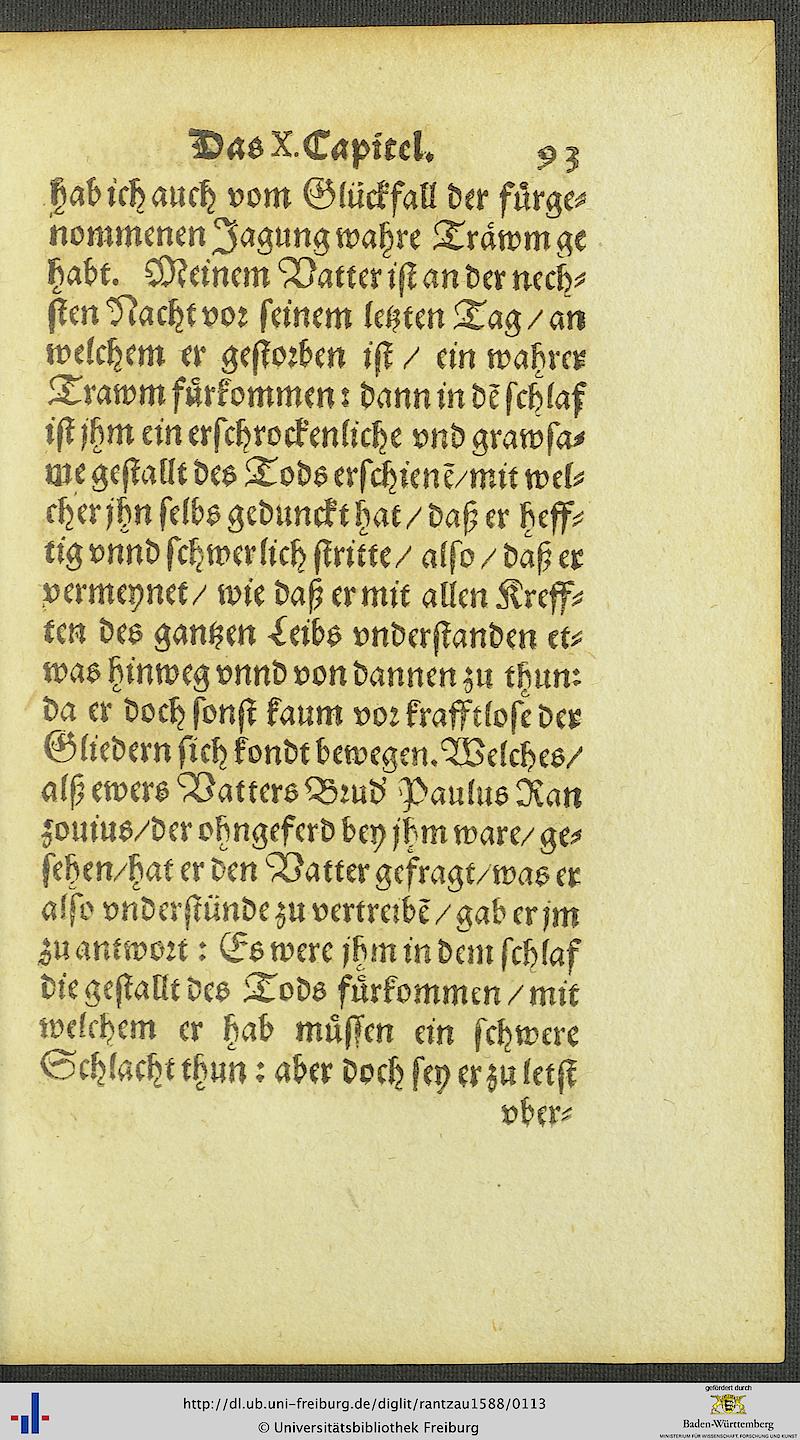 Das X. Capitel. 93
hab ich auch vom Glückfall der fürge⸗
nommenen Jagung wahre Träwm ge
habt. Meinem Vatter ist an der nech⸗
sten Nacht vor seinem letzten Tag / an
welchem er gestorben ist / ein wahrer
Trawm fürkommen: dann in dē schlaf
ist jhm ein erschrockenliche vnd grawsa⸗
me gestallt des Tods erschienē / mit wel⸗
cher jhn selbs gedunckt hat / daß er heff⸗
tig vnnd schwerlich stritte / also / daß er
vermeynet / wie daß er mit allen Kreff⸗
ten des gantzen Leibs vnderstanden et⸗
was hinweg vnnd von dannen zu thun:
da er doch sonst kaum vor krafftlose der
Gliedern sich kondt bewegen. Welches /
alß ewers Vatters Brud' Paulus Ran
zouius / der ohngeferd bey jhm ware / ge⸗
sehen / hat er den Vatter gefragt / was er
also vnderstünde zu vertreibē / gab er jm
zu antwort : Es were jhm in dem schlaf
die gestallt des Tods fürkommen / mit
welchem er hab müssen ein schwere
Schlacht thun : aber doch sey er zu letst
vber⸗
http://dl.ub.uni-freiburg.de/diglit/rantzau1588/0113
© Universitätsbibliothek Freiburg
gefördert durch
Baden-Württemberg
MINISTERIUM FÜR WISSENSCHAFT, FORSCHUNG UND KUNST